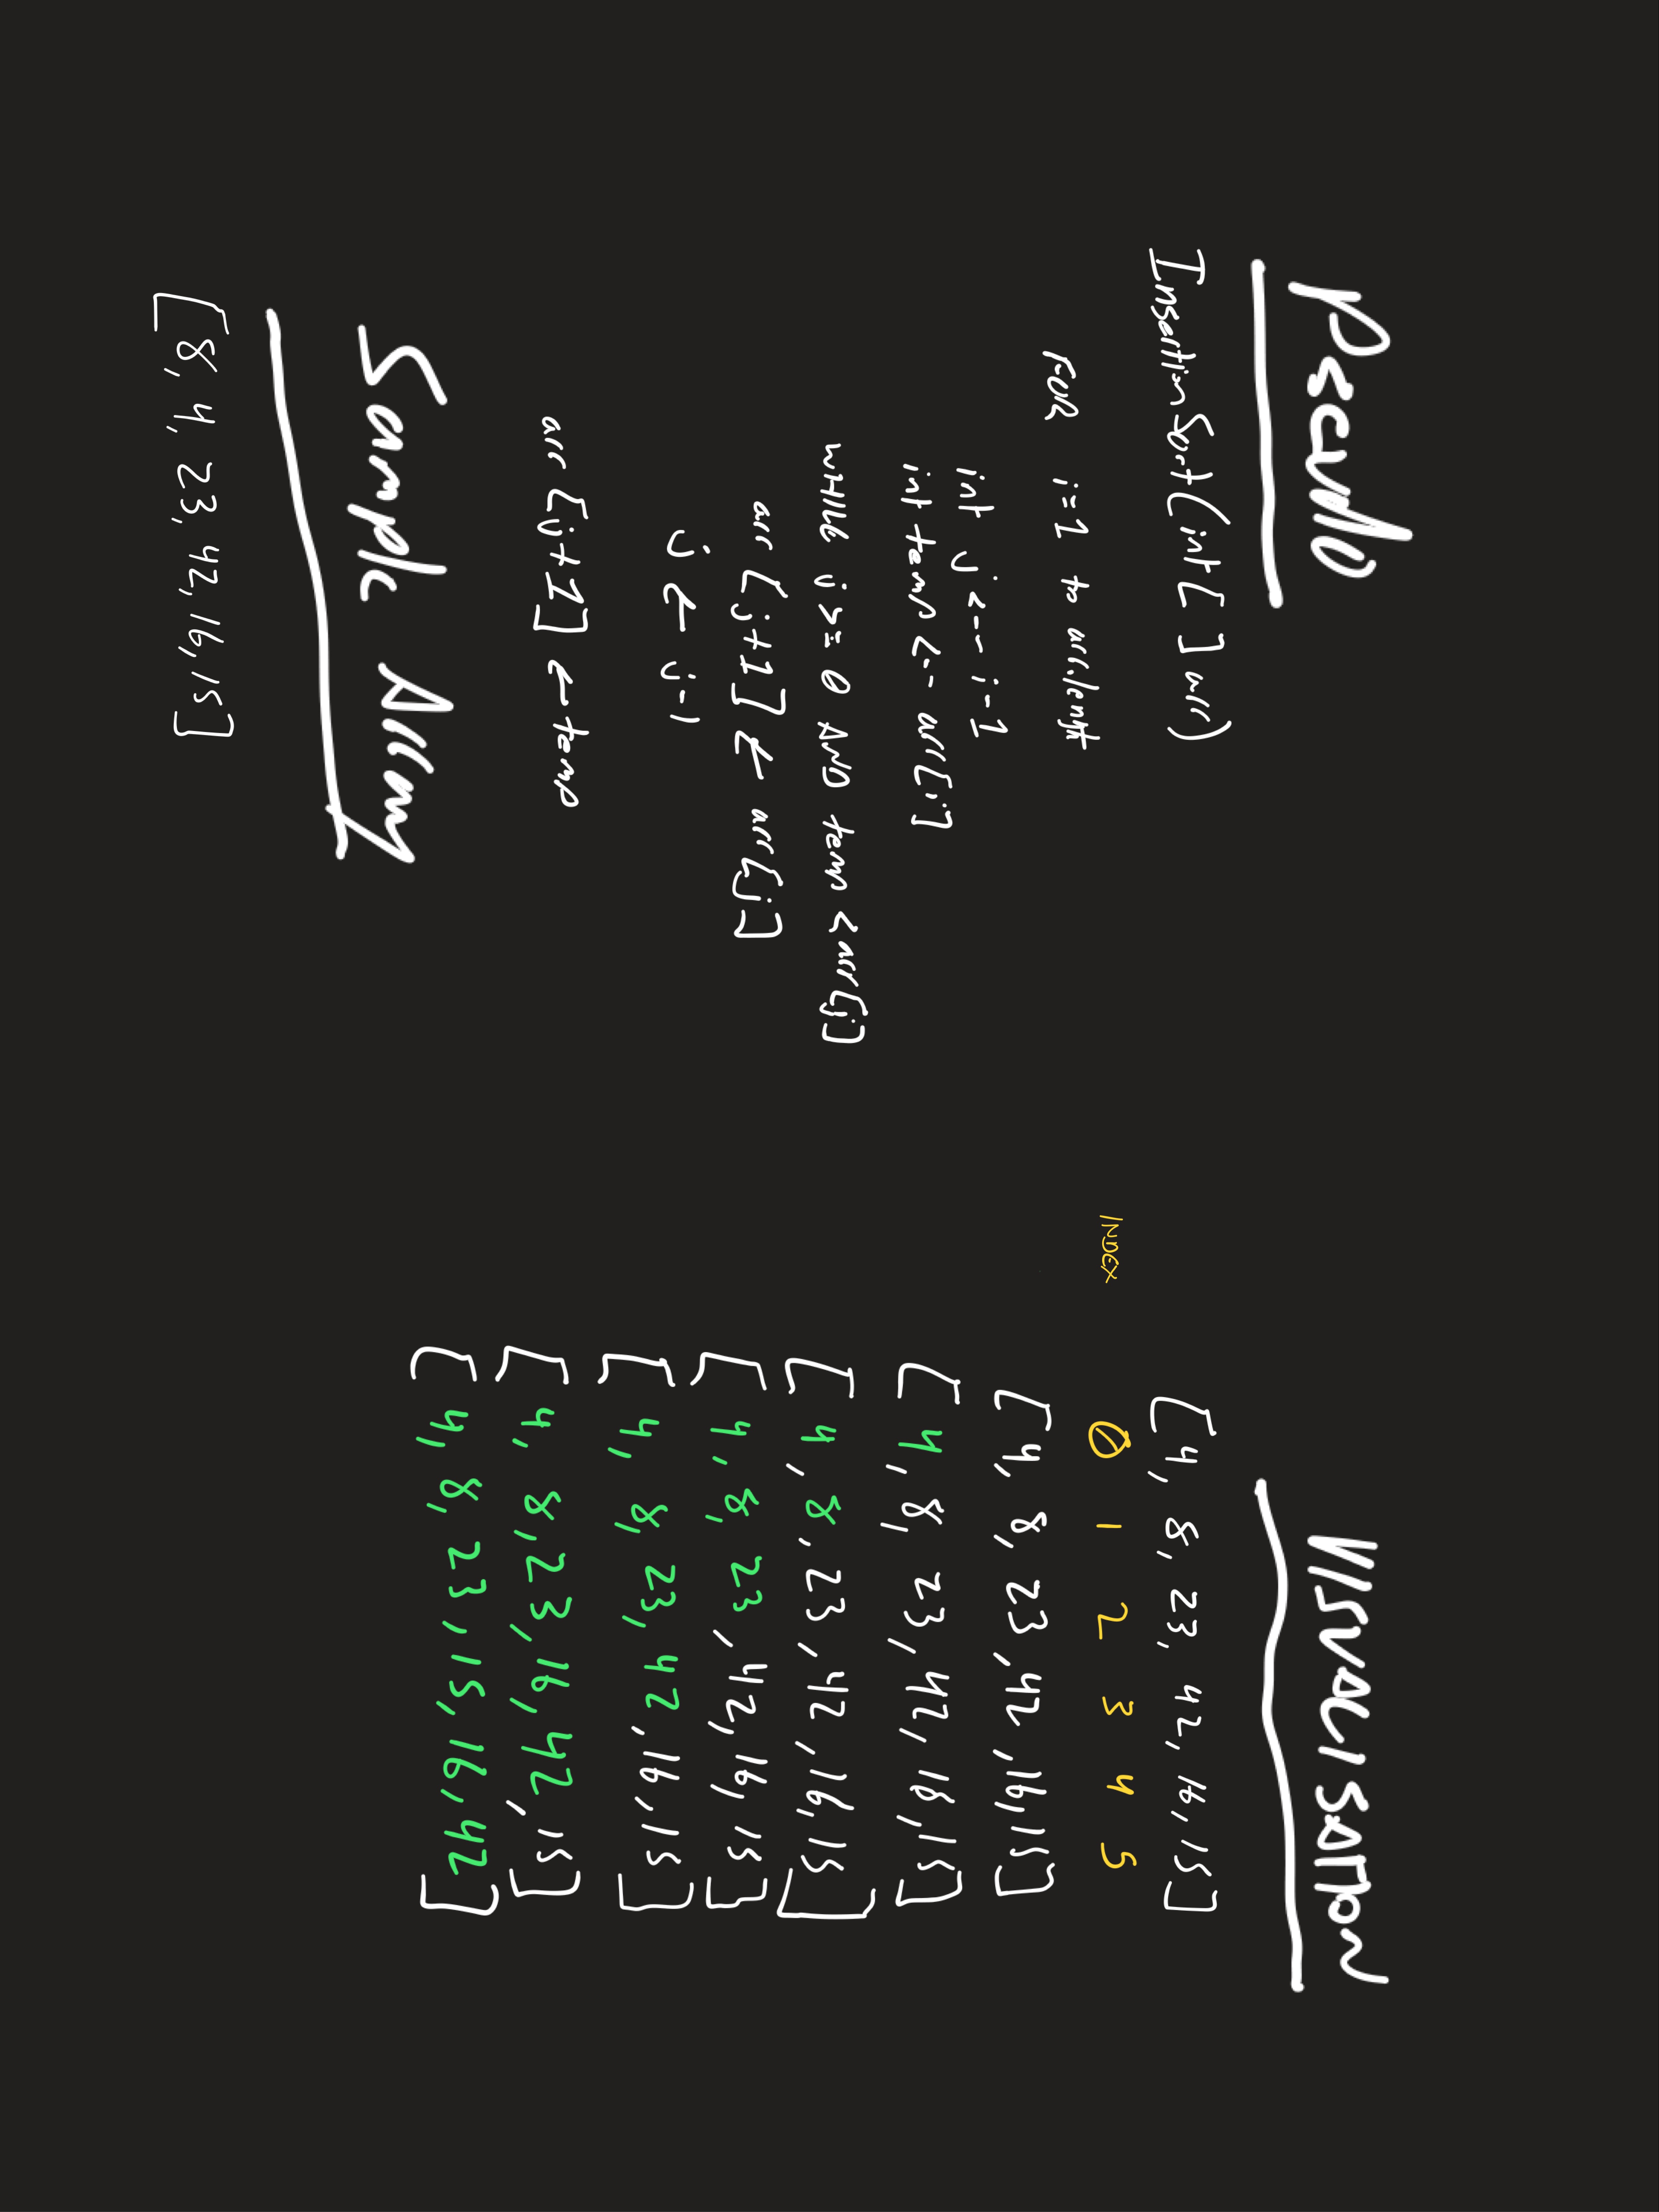 Pseudo
InsertionSort(int[ ] arr)
FOR i=1 to arr.length
int j <-- i-1
int temp <-- arr[i]
WHILE j >= 0 AND temp < arr[j]
arr [j+1] ← arr[j]
j ← j-1
arr [j+1] ← temp
Sample Array
[8, 4, 23, 42, 16, 15]
VISUALISATION
[4, 8, 23, 42, 16, 15]
INDEX 0 1 2 3 4 5
[4, 8, 23, 42, 16, 15]
[4, 8, 23, 42, 16, 15]
[4, 8, 23, 42, 16, 15]
[4, 8, 23, 42, 16, 15]
[4, 8, 23, 42, 16, 15]
[4, 8, 23, 16, 42, 15]
[4, 8, 23, 15, 16, 42]